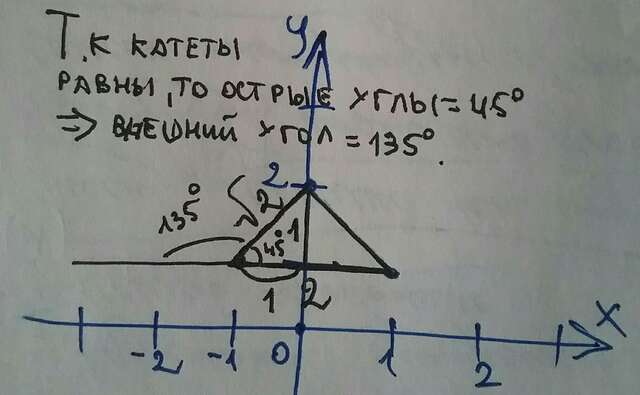 Т.К КАТЕТЫ
РАВНЫ, ТО ОСТРЫЕ УГЛЫ = 45°
⇒ ВНЕШНИЙ УГОЛ = 135°.
y
2
135°
√2
1
45°
1
2
-2 -1 0 1 2 X